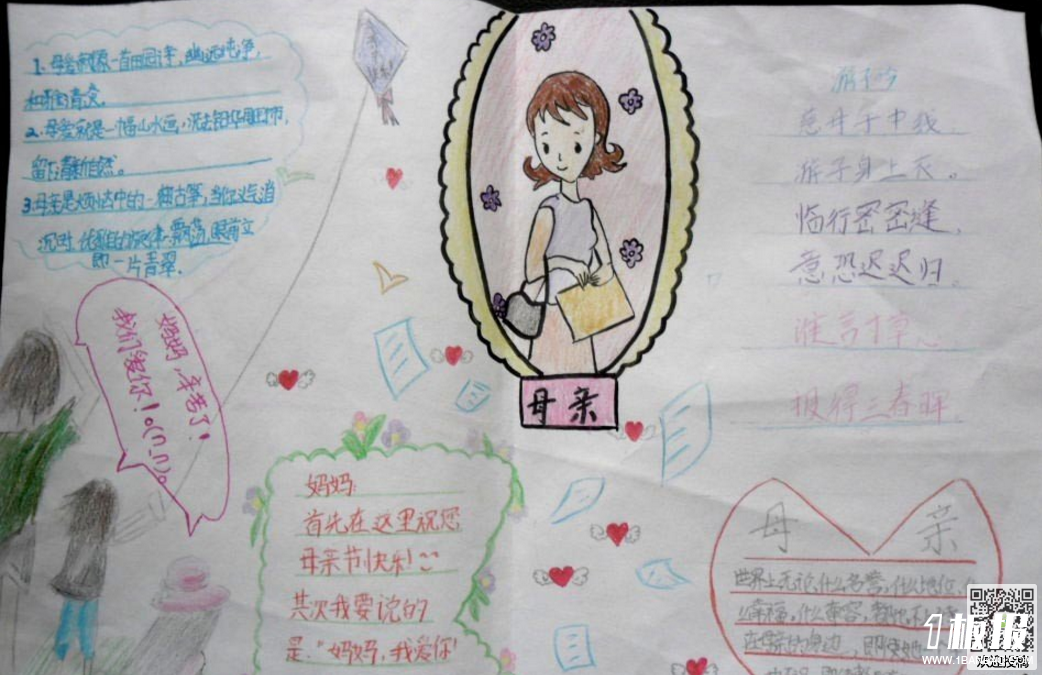 1、母爱就像一首田园诗,幽远纯净,
和雅清淡。
2、母爱就是一幅山水画,洗去铅华雕饰,
留下清新自然。
3.母亲是烦 中的一 古筝,当你意气消
沉时,优雅的旋律一飘荡,眼前立
即一片青翠.
妈妈,辛苦了!
我们爱你!o(∩_∩)o
母亲
游子吟
慈母手中线,
游子身上衣。
临行密密缝,
意恐迟迟归。
谁言寸草心
报得三春晖.
妈妈:
首先在这里祝您
母亲节快乐!
其次我要说的
是:"妈妈,我爱你!
母亲
世界上无论什么名誉,什么地位,
么幸福,什么尊荣,都比不上
在母亲的身边,即使她
1板报
WWW.1BANBAO.COM
欢迎投稿